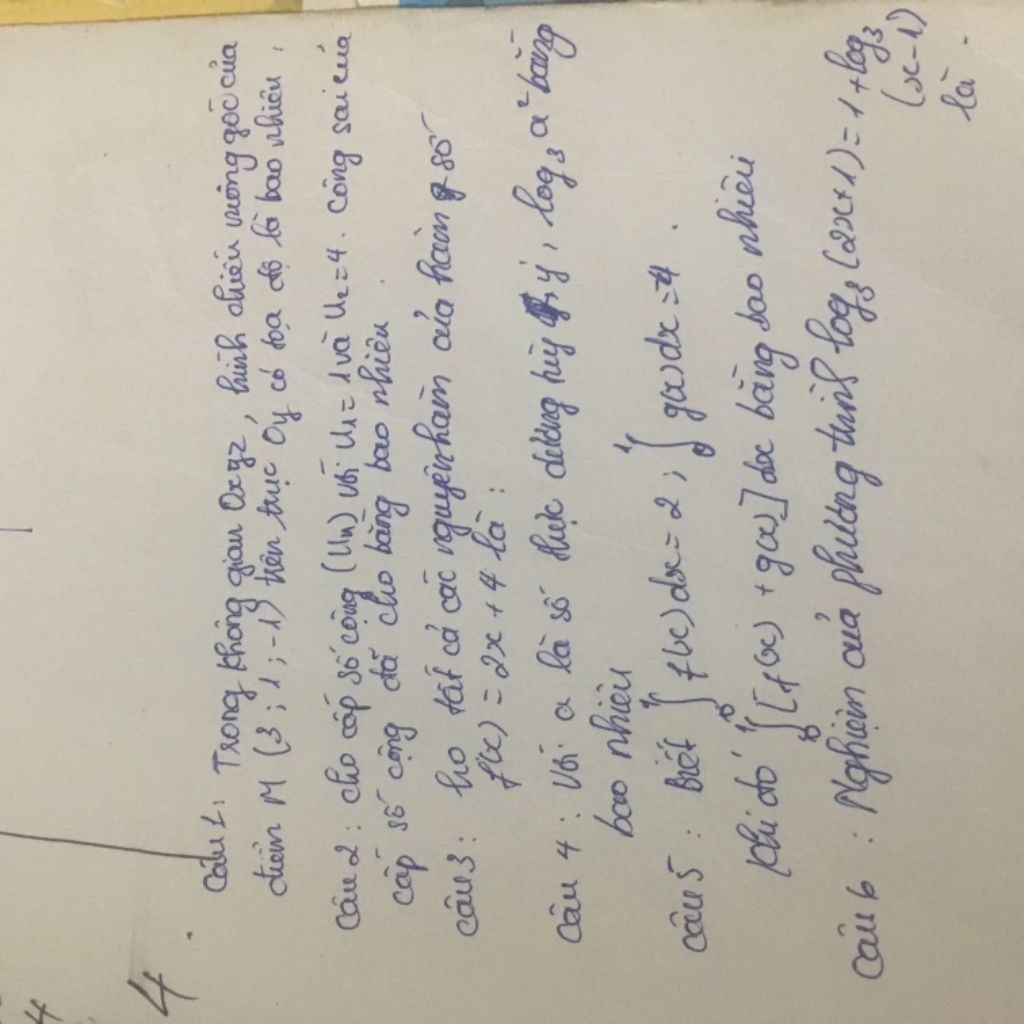 4
4
Câu 1: Trong không gian Oxyz, hình chiếu vuông góc của
điểm M (3; 1; -1) trên trục Oy có tọa độ là bao nhiêu.
Câu 2: cho cấp số cộng (Un) với U1 = 1 và U2 = 4. Công sai của
cấp số cộng đã cho bằng bao nhiêu
Câu 3: họ tất cả các nguyên hàm của hàm số
f(x) = 2x + 4 là:
Câu 4: Với a là số thực dương tùy ý, log3 a² bằng
bao nhiêu
Câu 5: Biết ∫₀¹ f(x)dx = 2; ∫₀¹ g(x)dx = -4.
Khi đó ∫₀¹ [f(x) + g(x)]dx bằng bao nhiêu
Câu 6: Nghiệm của phương trình log3 (2x+1) = 1 + log3
(x-1)
là.